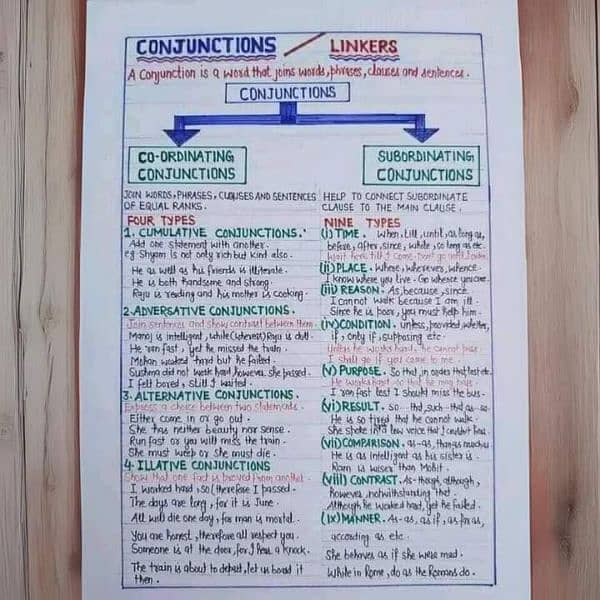 CONJUNCTIONS / LINKERS
A Conjunction is a word that joins words, phrases, clauses and sentences.
CONJUNCTIONS
CO-ORDINATING
CONJUNCTIONS
JOIN WORDS, PHRASES, CLAUSES AND SENTENCES
OF EQUAL RANKS.
FOUR TYPES
1. CUMULATIVE CONJUNCTIONS.
Add one statement with another.
eg Shyam is not only rich but kind also.
He as well as his friends is illiterate.
He is both handsome and strong.
Raju is reading and his mother is cooking.
2. ADVERSATIVE CONJUNCTIONS.
Join sentences and show contrast between them.
Manoj is intelligent, while (whereas) Raju is dull.
He ran fast, yet he missed the train.
Mohan worked hard but he failed.
Sushma did not work hard, however she passed.
I felt bored, still I waited.
3. ALTERNATIVE CONJUNCTIONS.
Express a choice between two statements.
Either come in or go out.
She has neither beauty nor sense.
Run fast or you will miss the train.
She must weep or she must die.
4. ILLATIVE CONJUNCTIONS
Show that one fact is proved from another.
I worked hard, so (therefore I passed.
The days are long, for it is June.
All will die one day, for man is mortal.
You are honest, therefore all respect you.
Someone is at the door, for I hear a knock.
The train is about to depart, let us board it
then.
SUBORDINATING
CONJUNCTIONS
HELP TO CONNECT SUBORDINATE
CLAUSE TO THE MAIN CLAUSE.
NINE TYPES
(i) TIME. When, till, until, as long as,
before, after, since, while, so long as etc.
Wait here till I come. Don't go until
(ii) PLACE. Where, wherever, whence.
I know where you live. Go whence you
(iii) REASON. As, because, since.
I cannot walk because I am ill.
Since he is poor, you must help him.
(iv) CONDITION. unless, provided whether,
if, only if, supposing etc.
Unless he works hard, he cannot pass.
I shall go if you come to me.
(v) PURPOSE. So that, in order that etc.
He works hard so that he may pass.
I ran fast lest I should miss the bus.
(vi) RESULT. so--that, such-that
He is so tired that he cannot walk.
She spoke in low voice that I couldn't hear.
(vii) COMPARISON. as-as,
He is as intelligent as his sister is.
Ram is wiser than Mohit.
(viii) CONTRAST. As-though, although,
however, notwithstanding that.
Although he worked hard, yet he failed.
(ix) MANNER. As-as, as if, as far as,
according as etc.
She behaves as if she were mad.
While in Rome, do as the Romans do.